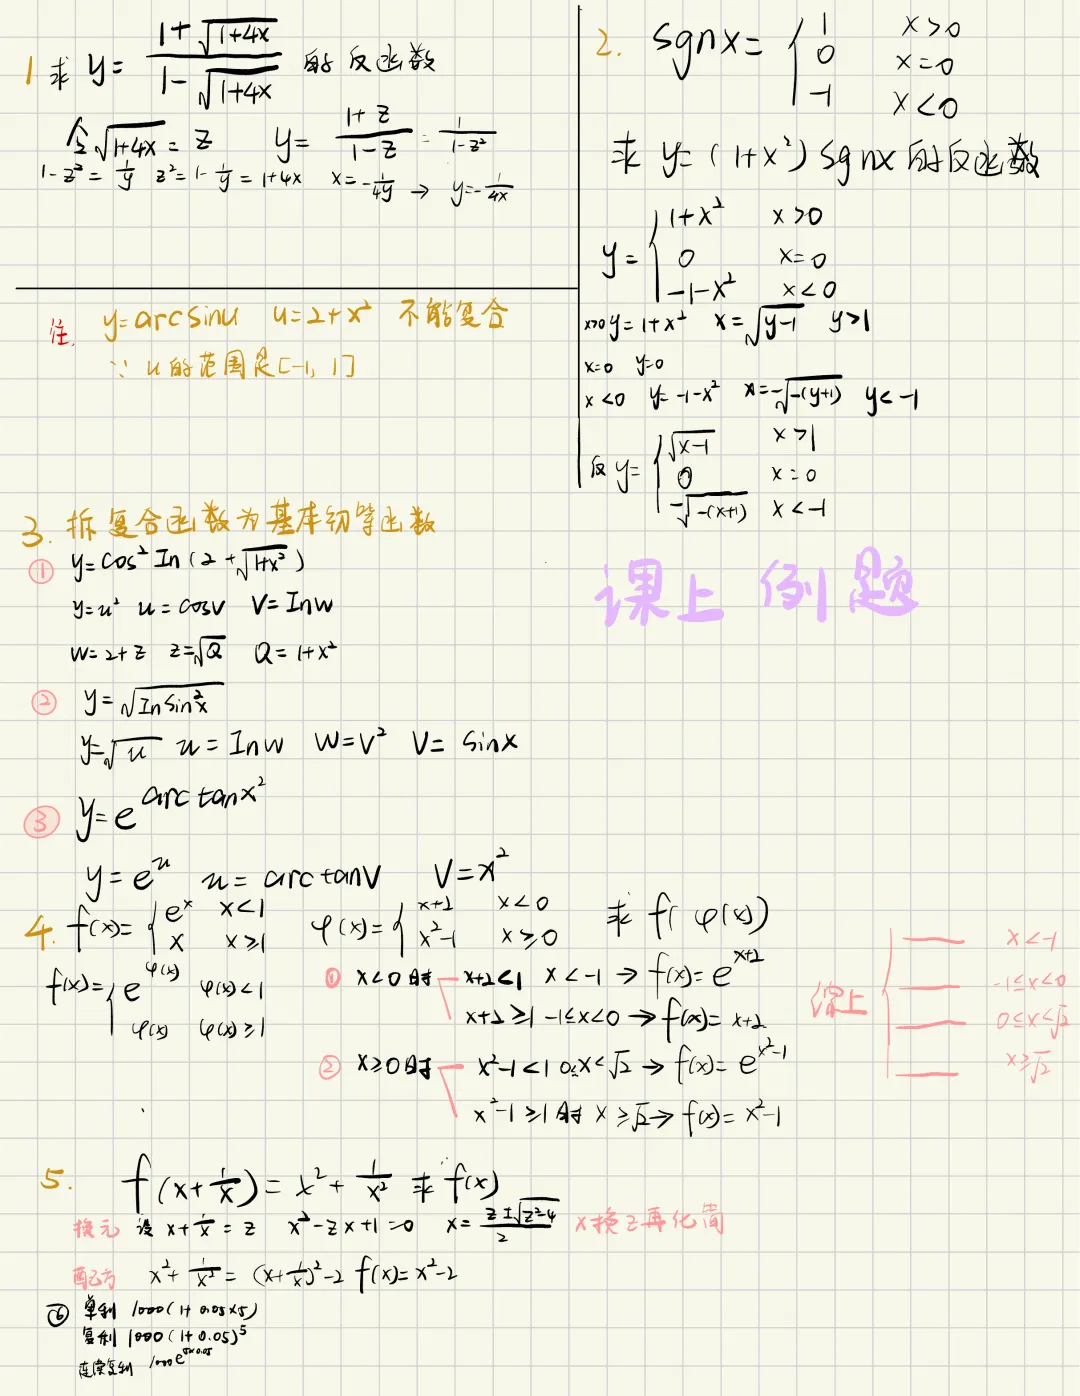 1 求 y = (1+√(1+4x))/(1-√(1+4x)) 的反函数
令√(1+4x) = z  y = (1+z)/(1-z) = 1/(1-z²)
1-z² = 1/y  z² = 1-1/y = 1+4x  x = -1/4y → y = -1/4x
注. y=arcsinu u=2+x² 不能复合
∵ u的范围是[-1, 1]
2. sgnx = { 1 x>0
0 x=0
-1 x<0
求 y=(1+x²)sgnx的反函数
y = { 1+x² x>0
0 x=0
-1-x² x<0
x>0 y=1+x² x=√(y-1) y>1
x=0 y=0
x<0 y=-1-x² x=-√(-(y+1)) y<-1
反 y= { √(x-1) x>1
0 x=0
-√(-(x+1)) x<-1
课上例题
3. 拆复合函数为基本初等函数
① y=cos²In(2+√(1+x²))
y=u² u=cosv V=Inw
W=2+z z=√Q Q=1+x²
② y=√(Insin²x)
y=√u u=Inw W=V² V=sinx
③ y=e^(arctanx²)
y=e^u u=arctanV V=x²
4. f(x)= { e^x x<1
x x≥1
φ(x)= { x+2 x<0
x²-1 x≥0
求 f(φ(x))
f(x)= { e^φ(x) φ(x)<1
φ(x) φ(x)≥1
① x<0时 x+2<1 x<-1 → f(x)=e^(x+2)
x+2≥1 -1≤x<0 → f(x)=x+2
② x≥0时 x²-1<1 0≤x<√2 → f(x)=e^(x²-1)
x²-1≥1时 x≥√2 → f(x)=x²-1
课上 { x<-1
-1≤x<0
0≤x<√2
x≥√2
5. f(x+1/x)=x²+1/x² 求f(x)
换元 设 x+1/x=z x²-zx+1=0 x=(z±√(z²-4))/2 x换z再化简
配方 x²+1/x²=(x+1/x)²-2 f(x)=x²-2
⑥ 单利 1000(1+0.05×5)
复利 1000(1+0.05)^5
连续复利 1000e^(5×0.05)